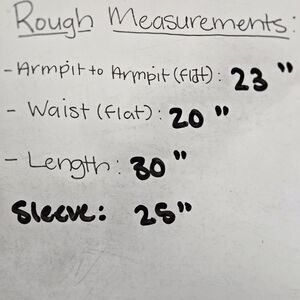 Rough Measurements:
- Armpit to Armpit (flat): 23"
- Waist (flat): 20"
- Length: 30"
Sleeve: 25"